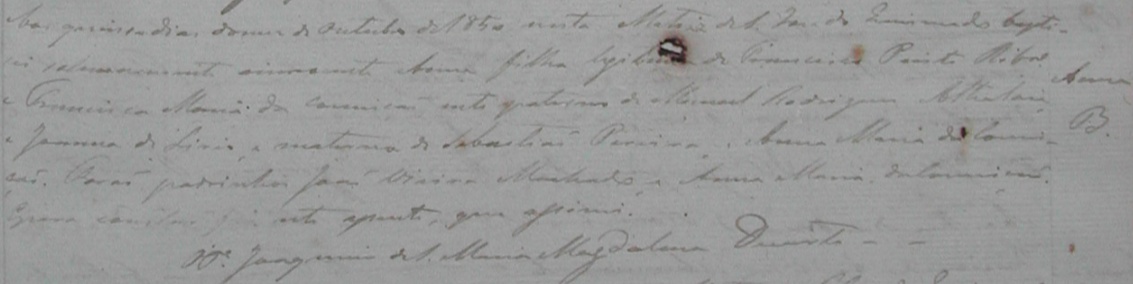 Aos quinze dias do mez de outubro de 1850 nesta Matriz de S. José do Queimado bapti-
sei solennemente innocente Anna filha legitima de Francisco Pinto Ribro
e Francisca Maria da Conceicaõ neto paterno de Manoel Rodrigues
e Joanna de e materna de Sebastiaõ Pereira, e Anna Maria da Concei-
caõ. Foraõ padrinhos José Vieira Machado e Anna Maria da Conceicaõ.
E para constar fiz este assento, que assinei.
Pe. Joaquim de S. Maria Magdalena Duarte
Anna
B.